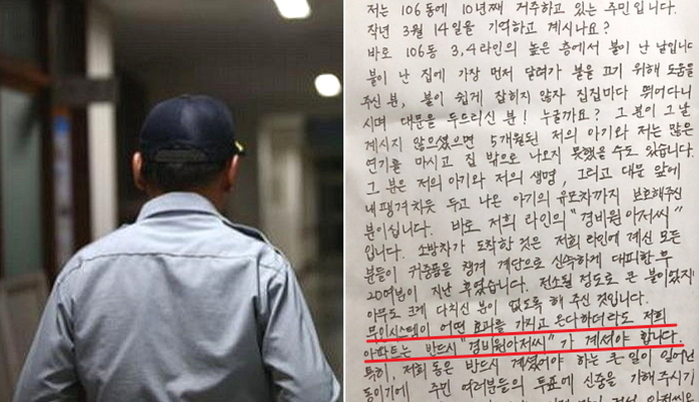 저는 106동에 10년째 거주하고 있는 주민입니다.
작년 3월 14일을 기억하고 계시나요?
바로 106동 3,4라인의 높은 층에서 불이 난 날입니다
불이 난 집에 가장 먼저 달려가 불을 끄기 위해 도움을
주신 분, 불이 쉽게 잡히지 않자 집집마다 뛰어다니
시며 대문을 두드리신 분! 누굴까요? 그 분이 그날
계시지 않으셨으면 5개월된 저의 아기와 저는 많은
연기를 마시고 집 밖으로 나오지 못했을 수도 있습니다.
그 분은 저의 아기와 저의 생명, 그리고 대문 앞에
내팽겨치듯 두고 나온 아기의 유모차까지 보호해주신
분이십니다. 바로 저희 라인의 "경비원 아저씨"
입니다. 소방차가 도착한 것은 저희 라인에 계신 모든
분들이 귀중품을 챙겨 계단으로 신속하게 대피한 후
20여분이 지난 후였습니다. 전소될 정도로 큰 불이었지만
아무도 크게 다치신 분이 없도록 해 주신 것입니다.
무인시스템이 어떤 효과를 가지고 온다하더라도 저희
아파트는 반드시 "경비원아저씨"가 계셔야 합니다.
특히, 저희 동은 반드시 계셨어야 하는 큰 일이 일어난
동이기에 주민 여러분들의 투표에 신중을 가해주시기